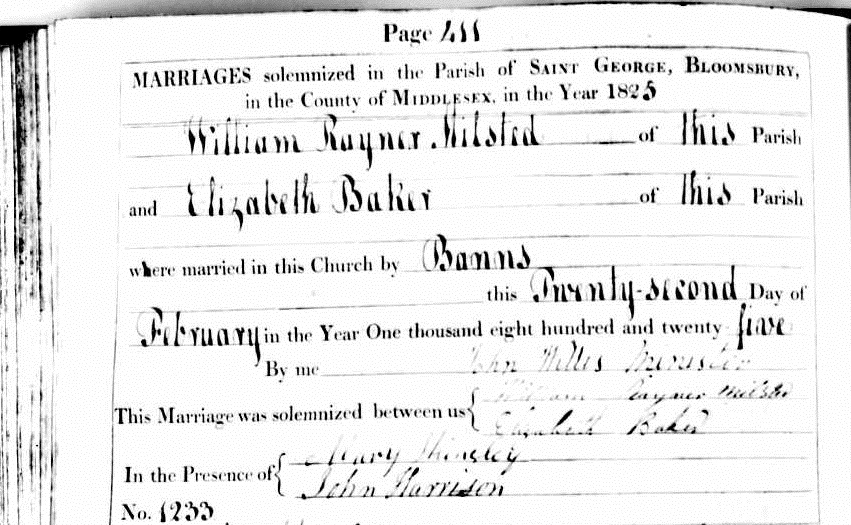 Page 411
MARRIAGES solemnized in the Parish of SAINT GEORGE, BLOOMSBURY,
in the County of MIDDLESEX, in the Year 1825
William Rayner Milsted of this Parish
and Elizabeth Baker of this Parish
where married in this Church by Banns
this Twenty-second Day of
February in the Year One thousand eight hundred and twenty five
By me John Willis Minister
This Marriage was solemnized between us { William Rayner Milsted
Elizabeth Baker
In the Presence of { Mary
John Harrison
No. 1233